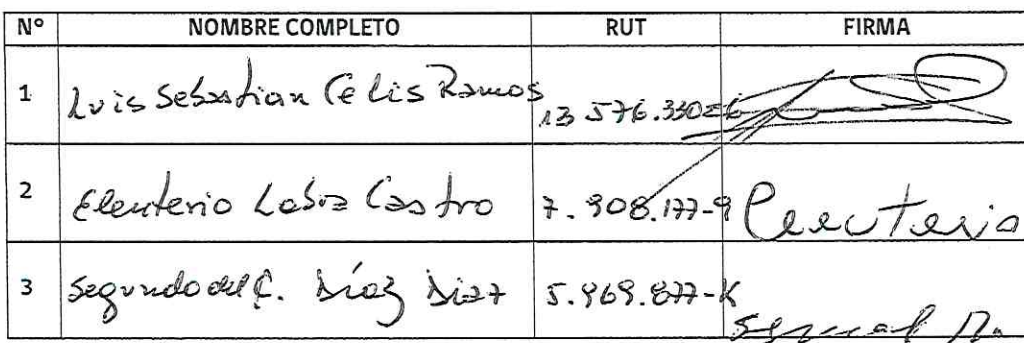 N° NOMBRE COMPLETO RUT FIRMA
1 Luis Sebastian Celis Ramos 13 576.330-6
2 Eleuterio Castro 7.908.177-9 Eleuterio
3 Segundo del C. Díaz Diaz 5.969.877-K